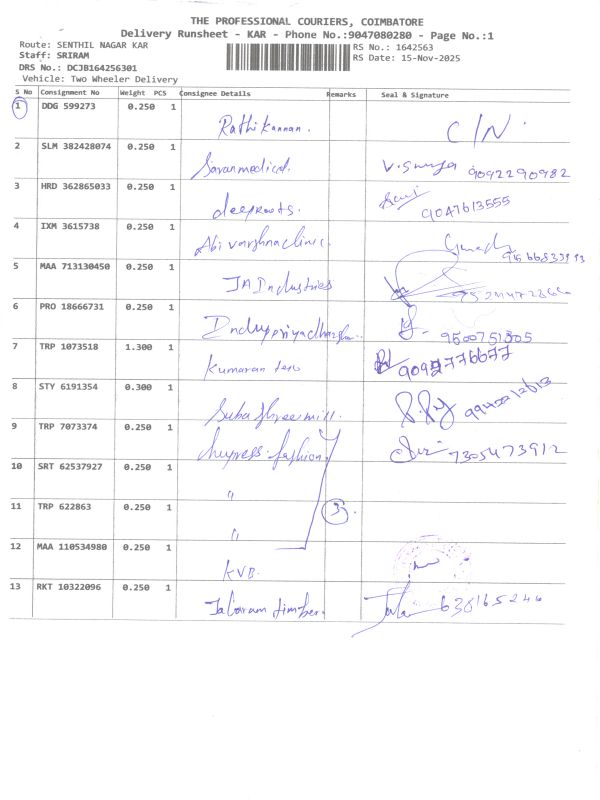 THE PROFESSIONAL COURIERS, COIMBATORE
Delivery Runsheet - KAR - Phone No.:9047080280 - Page No.:1
Route: SENTHIL NAGAR KAR RS No.: 1642563
Staff: SRIRAM RS Date: 15-Nov-2025
DRS No.: DCJB164256301
Vehicle: Two Wheeler Delivery
S No Consignment No Weight PCS Consignee Details Remarks Seal & Signature
1 DDG 599273 0.250 1
Rathikannan. C/N.
2 SLM 382428074 0.250 1
Saranmedical. 9092290982
3 HRD 362865033 0.250 1
deeproots. 9047613555
4 IXM 3615738 0.250 1
Abi varshna clinic.
5 MAA 713130450 0.250 1
JA Industries
6 PRO 18666731 0.250 1
9500751305
7 TRP 1073518 1.300 1
Kumaran tex
8 STY 6191354 0.300 1
Suba shree mill.
9 TRP 7073374 0.250 1
fashion 7305473912
10 SRT 62537927 0.250 1
"
11 TRP 622863 0.250 1
" 3
12 MAA 110534980 0.250 1
KVB.
13 RKT 10322096 0.250 1
timber.